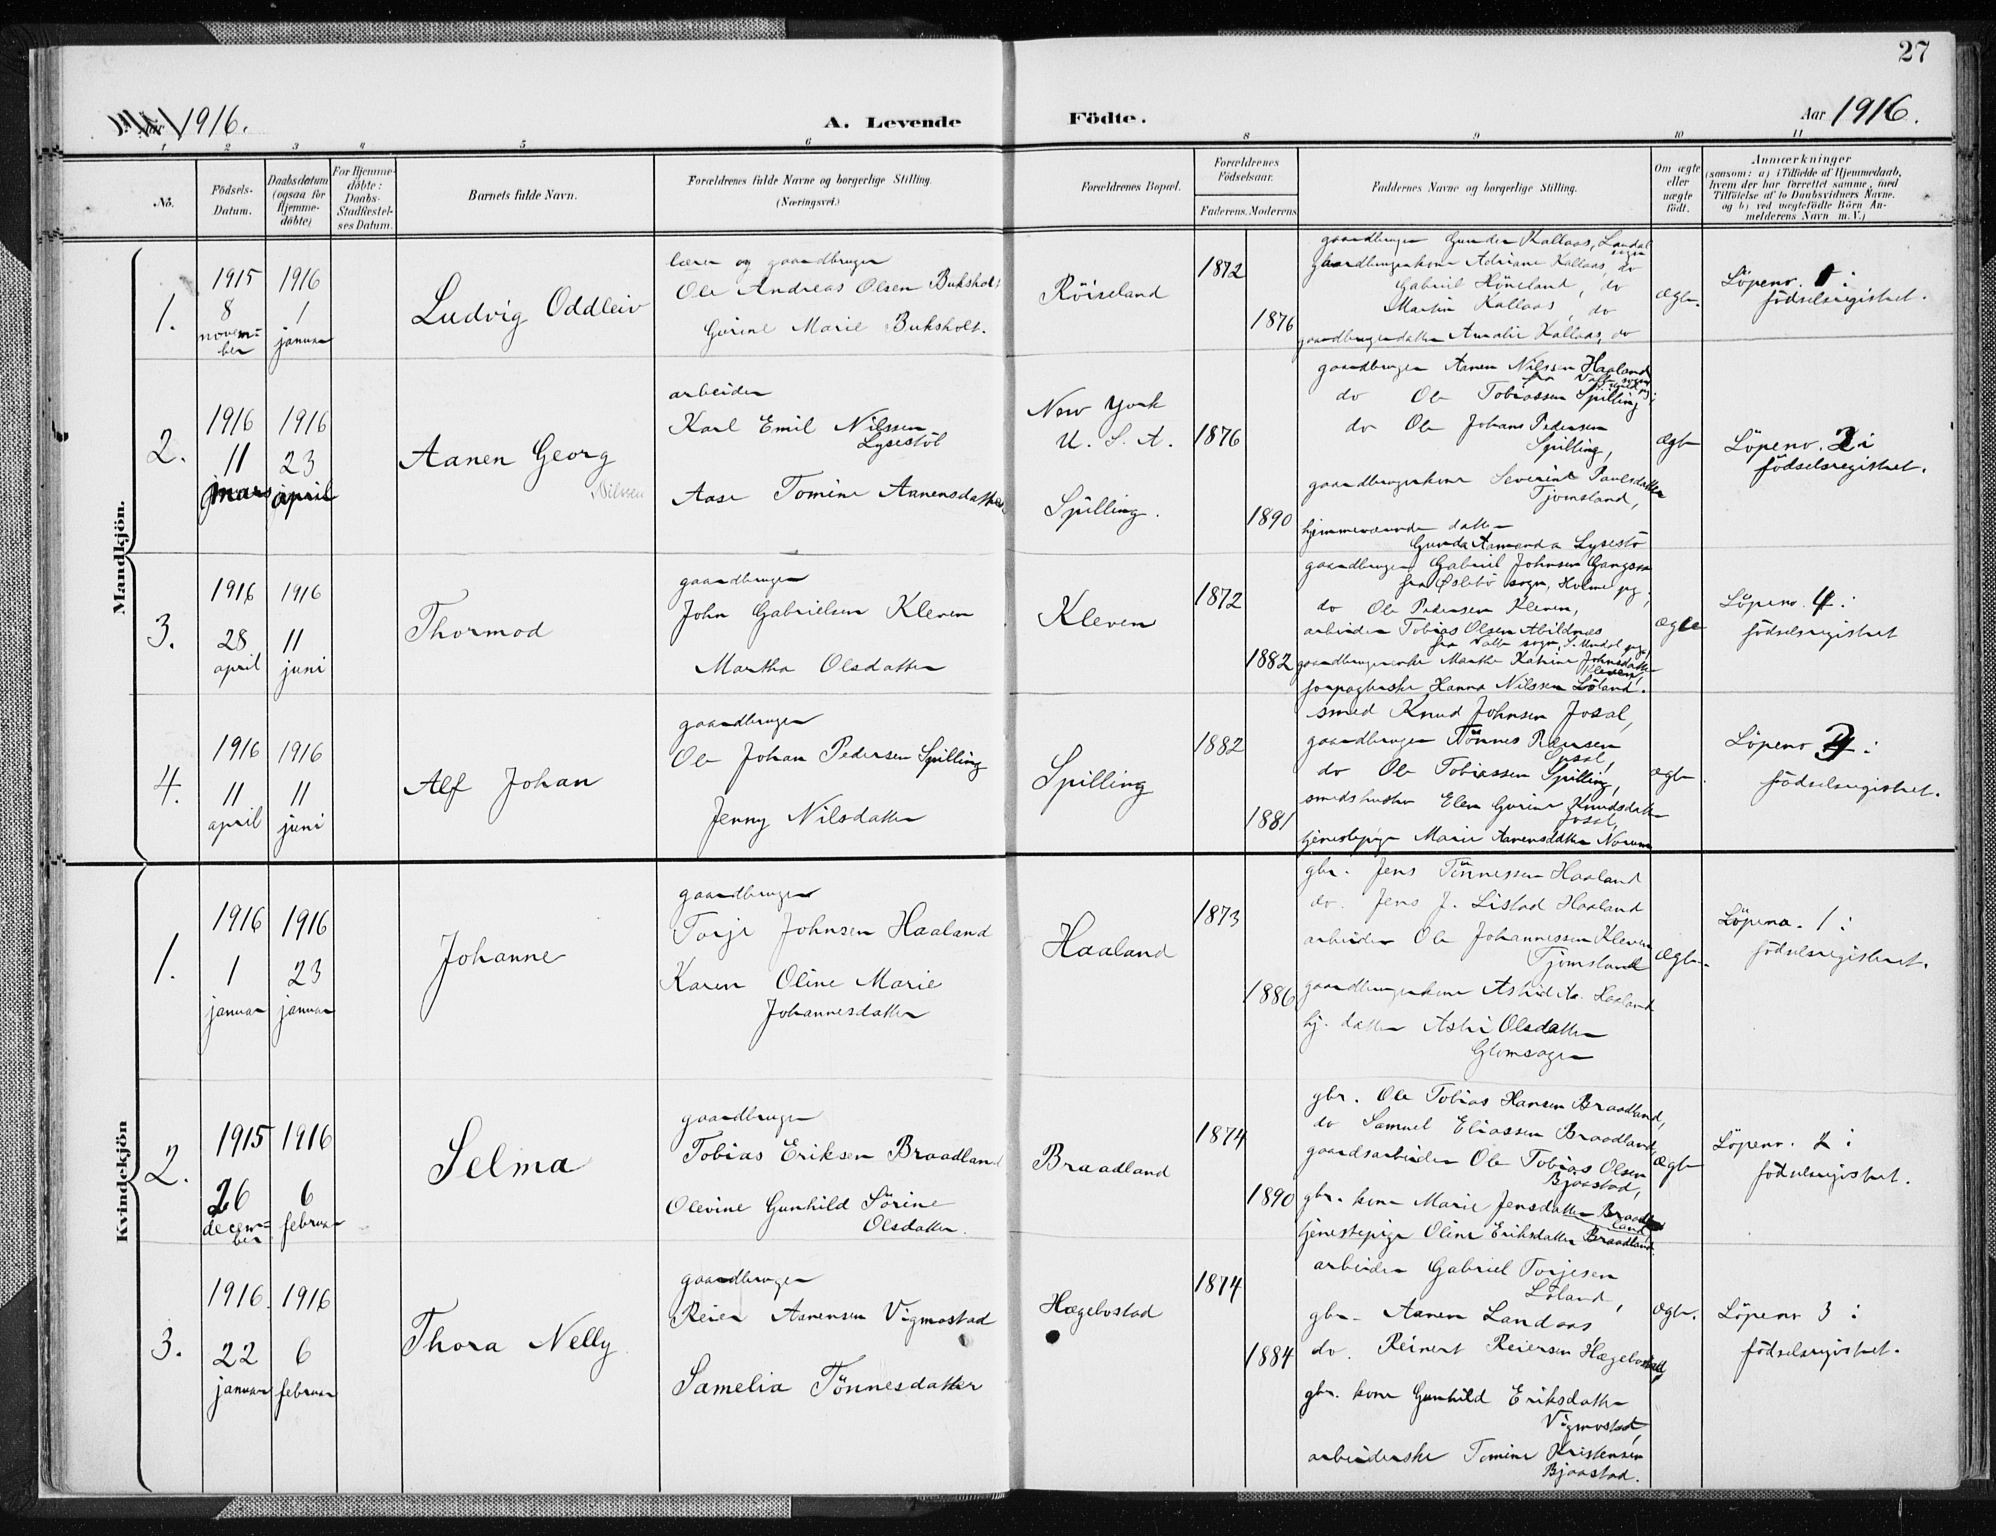 27
1916.
A. Levende
Födte.
Aar 1916.
1 2 3 4 5 6 8 9 10 11
No.
Födsels-
Datum.
Daabsdatum
(ogsaa för
Hjemme-
döbte)
For Hjemme-
döbte:
Daabs-
Stadfæstel-
ses Datum.
Barnets fulde Navn.
Forældrenes fulde Navne og borgerlige Stilling.
(Næringsvei.)
Forældrenes Bopæl.
Forældrenes
Födselsaar.
Faderens. Moderens.
Faddernes Navne og borgerlige Stilling.
Om ægte
eller
uægte
födt.
Anmærkninger
(saasom: a) i Tilfælde af Hjemmedaab,
hvem der har forrettet samme, med
Tilföielse af to Daabsvidners Navne,
og b) ved uægtefödte Börn An-
melderens Navn m. V.)
Mandkjön.
1.
1915
8
novem-
ber
1916
1
januar
Ludvig Oddleiv
lærer og gaardbruger
Ole Andreas Olsen Buksholt
Gurine Marie Buksholt.
Röiseland
1872
1876
gaardbruger Gunder Kallaas, Landal
sogn
gaardbrugerkone Adriane Kallaas, do
Gabriel Höneland, do
Martin Kallaas, do
gaardbrugerdatter Amalie Kallaas, do
ægte.
Löpenr. 1 i
födselsregistret.
2.
1916
11
mars
1916
23
april
Aanen Georg
Nilssen
arbeider
Karl Emil Nilssen
Lysestöl
Aase Tomine Aanensdatter
New York
U. S. A.
Spilling.
1876
1890
gaardbruger Aanen Nilssen Haaland
do Ole Tobiassen Spilling,
do Ole Johans Pedersen
Spilling,
gaardbrugerkone Severine Paulsdatter
Tjomsland,
hjemmeværende datter
Gunda Aamanda Lysestö
ægte
Löpenr. 2 i
födselsregistret.
3.
1916
28
april
1916
11
juni
Thormod
gaardbruger
John Gabrielsen Kleven
Martha Olsdatter
Kleven
1872
1882
gaardbruger Gabriel Johnsen Gangsaa
fra Öslebö sogn, Holme pg.,
do Ole Pedersen Kleven,
arbeider Tobias Olsen Abildnæs
fra Valle sogn, S. Undal pg.
gaardbrugerenke Marthe Katrine Johnsdatter
Kleven,
forpagterske Hanna Nilssen Löland.
ægte
Löpenr. 4 i
födselsregistret
4.
1916
11
april
1916
11
juni
Alf Johan
gaardbruger
Ole Johan Pedersen Spilling
Jenny Nilsdatter
Spilling
1882
1881
smed Knud Johnsen Josal,
gaardbruger Tönnes Reiersen
do Ole Tobiassen Spilling,
smedshustru Elen Gurine Knudsdatter
Josal,
tjenestepige Marie Aanensdatter Norum
ægte.
Löpenr 3 i
födselsregistret.
Kvindekjön
1.
1916
1
januar
1916
23
januar
Johanne
gaardbruger
Torje Johnsen Haaland
Karen Oline Marie
Johannesdatter
Haaland
1873
1886
gbr. Jens Tönnessen Haaland
do. Jens J. Listad Haaland
arbeider Ole Johannessen Kleven
Tjomsland
gaardbrugerkone Astrid Aa. Haaland
hj. datter Astri Olsdatter
Glomsagen
Ægte.
Löpenr. 1 i
födselsregistret.
2.
1915
26
decem-
ber
1916
6
februar
Selma
gaardbruger
Tobias Eriksen Braadland
Olevine Gunhild Sörine
Olsdatter.
Braadland
1874
1890
gbr. Ole Tobias Hansen Braadland,
do Samuel Eliassen Braadland
gaardsarbeider Ole Tobias Olsen
Bjaastad,
gbr. kone Marie Jensdatter Braad-
land,
tjenestepige Oline Eriksdatter Braadland.
Ægte
Löpenr. 2 i
födselsregistret.
3.
1916.
22
januar
1916
6
februar
Thora Nelly
gaardbruger
Reier Aanensen Vigmostad
Samelia Tönnesdatter
Hægebostad
1874
1884
arbeider Gabriel Torjesen
Löland,
gbr. Aanen Landaas
do. Reinert Reiersen Hægebostad,
gbr. kone Gunhild Eriksdatter
Vigmostad,
arbeiderske Tomine Kristensen
Bjaastad.
ægte.
Löpenr 3 i
födselsregistret.